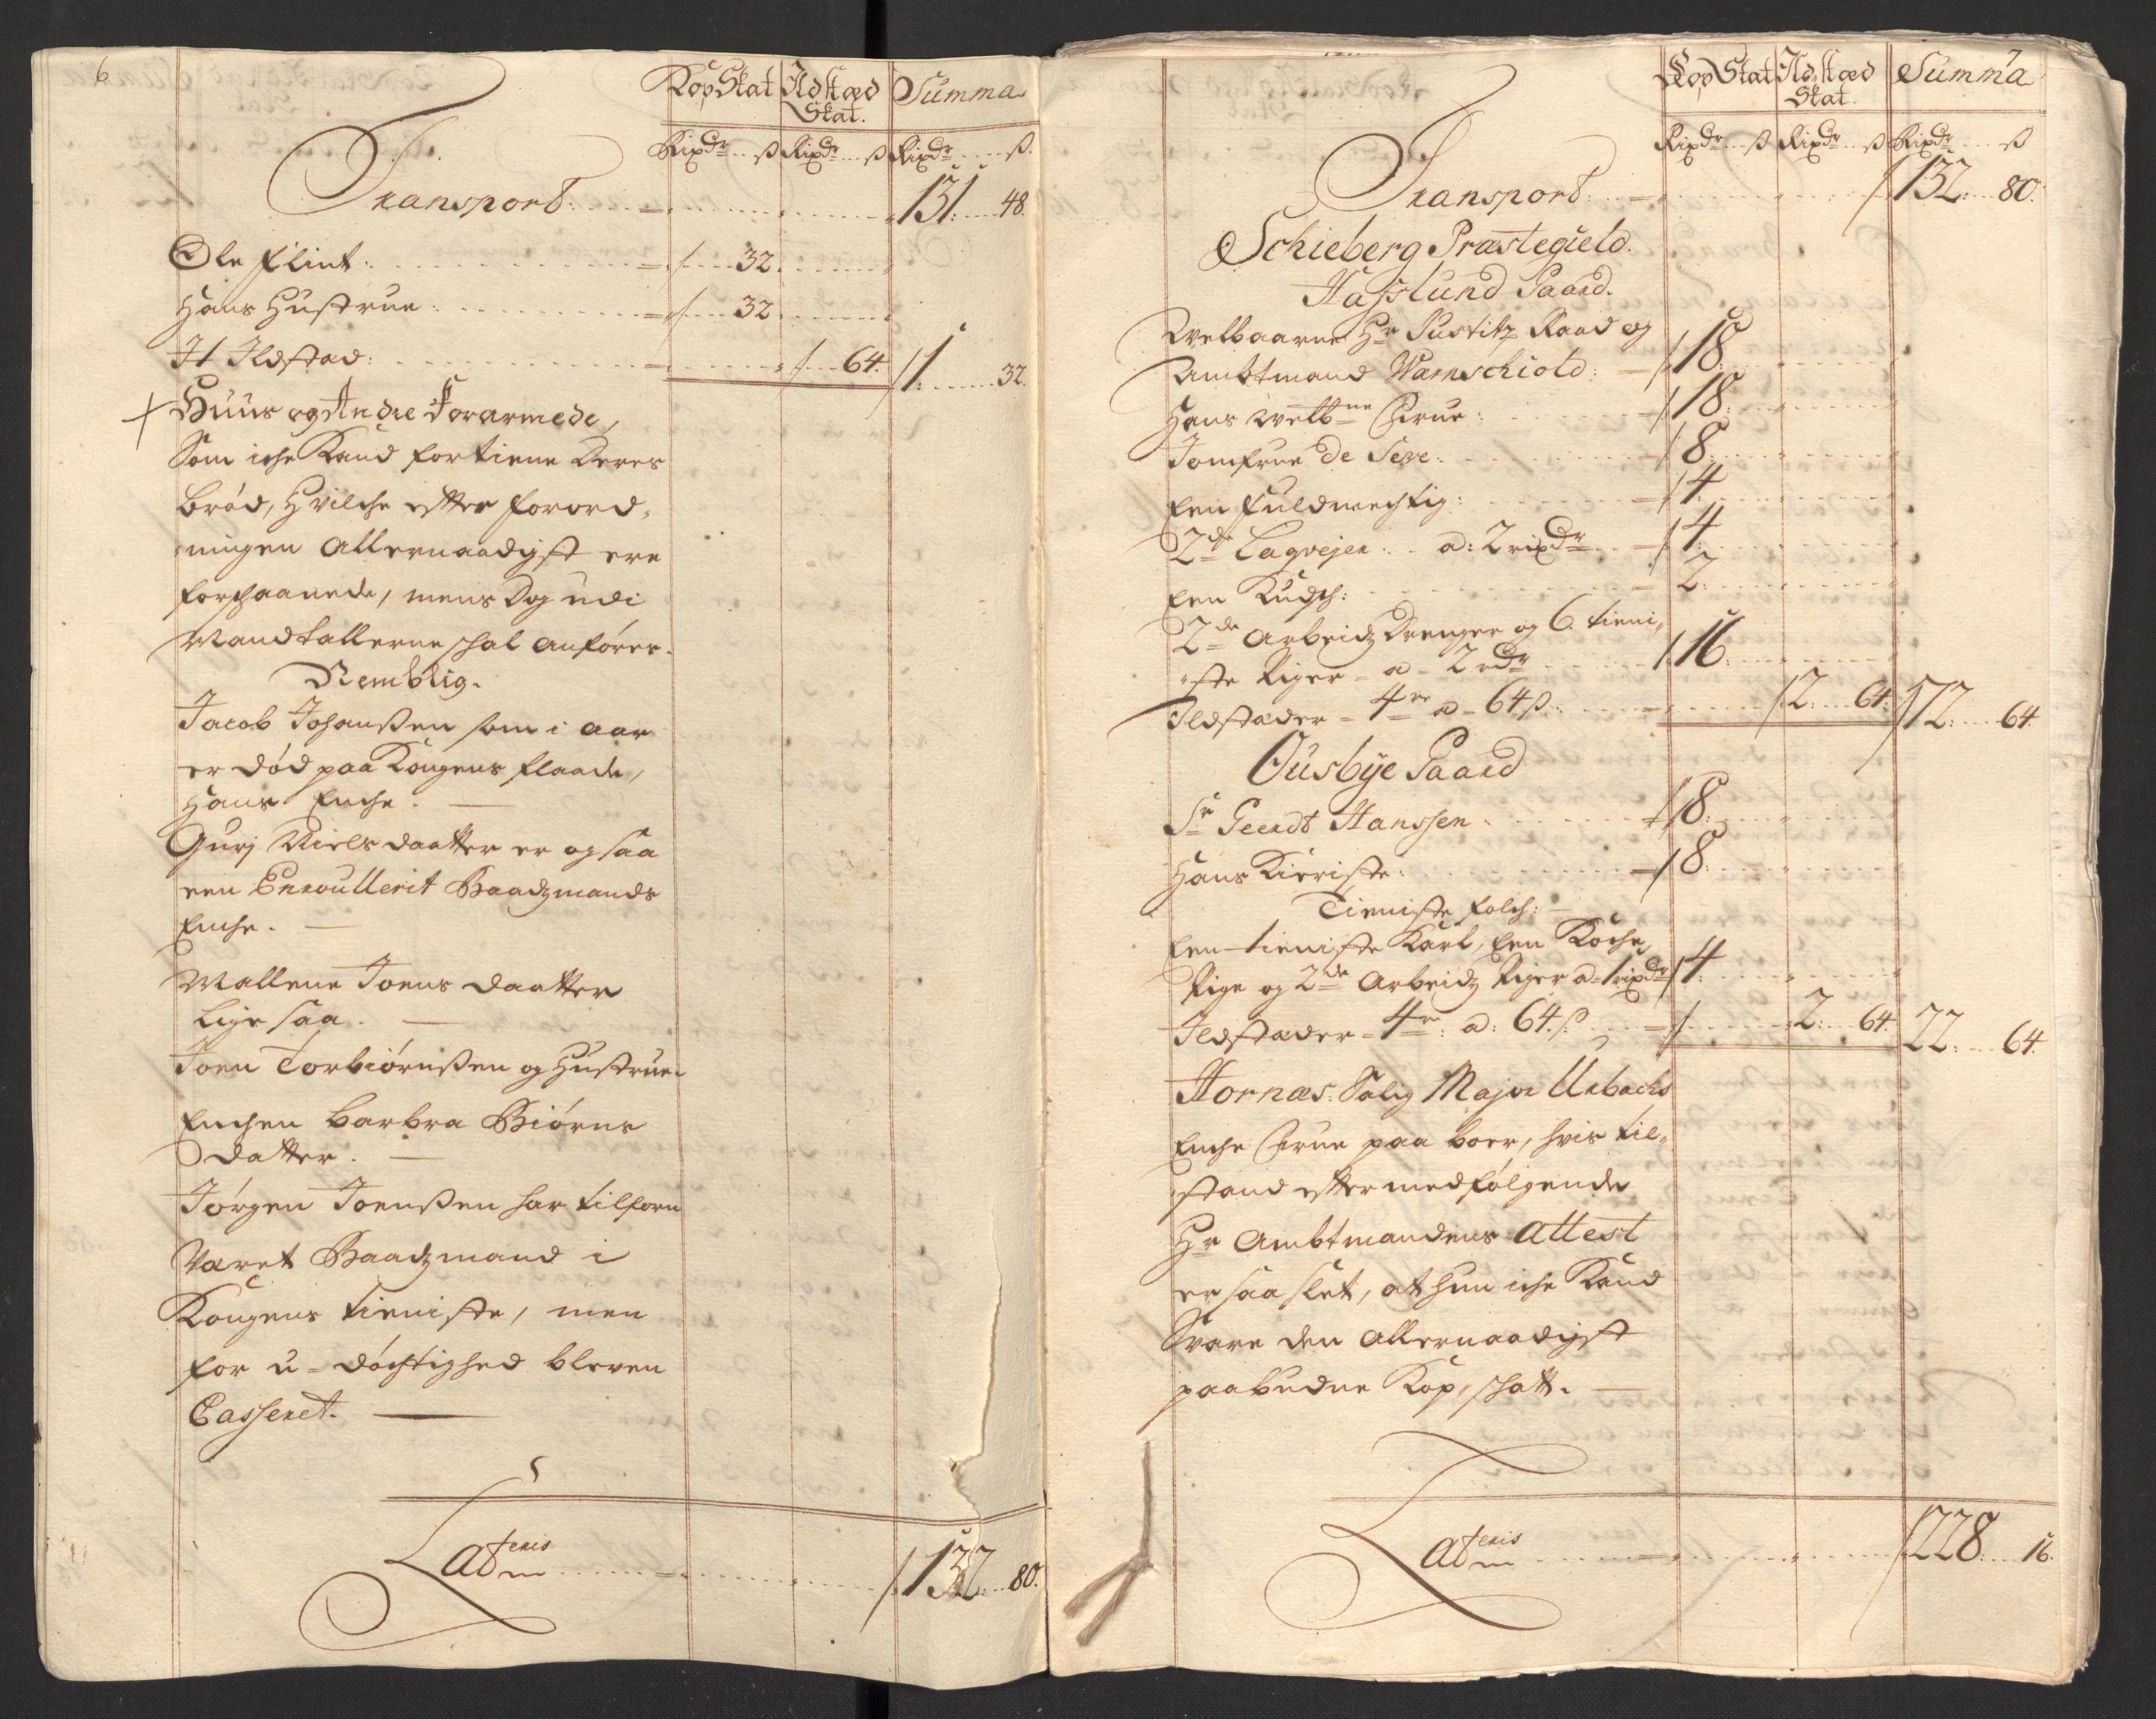 6
KopSkat Ildstæd Summa
Skat.
Rixdr ß Rixdr ß Rixdr ß.
Transport: 131: 48.
Ole Flint: 32
Hans Hustrue: 32
It Ildstæd: 64. 1: 32.
Huus og Andre Forarmede,
Som iche Kand fortiene Deres
brød, Hvilche efter forord-
ningen Allernaadigst ere
forschaanede, mens dog udi
Mandtallerne schal anføres.
Nemblig.
Jacob Johanßen som i aar
er død paa Kongens flaade,
Hans Enche.
Gurj Nielsdaatter er og saa
een Enroullerit Baadzmands
Enche.
Mallene Joens daatter
lige saa.
Joen Torbiørnßen og Hustrue
Enchen barbra Biørns
Datter.
Jørgen Joenßen har tilforn
Været Baadzmand i
Kongens tieniste, men
for u-døchtighed bleven
Casseret.
Lateris 132: 80.
7
KopSkat Ildstæd Summa
Skat.
Rixdr ß Rixdr ß Rixdr ß
Transport 132: 80.
Schieberg Præstegield.
Hafslund Gaard.
Welbaarne Hr Justitz Raad og
Ambtmand Warnschiold: 18:
Hans Welbne Frue: 18:
Jomfrue de Seve: 8:
Een Fuldmechtig: 4:
2de Laqvejer a: 2 rixdr 4:
Een Kudsch: 2:
2de Arbeidz Drenger og 6 tieni-
ste Piger a 2 rdr 16:
Ildstæder 4re a 64 ß: 2: 64: 72: 64.
Ousbye Gaard
Sr Geerdt Hanssen 8:
Hans Kieriste: 8:
Tieniste folch:
Een tieniste Karl, Een Koche
Pige og 2de Arbeidz Piger a 1 rixdr 4:
Ildstæder 4re: a: 64 ß: 2: 64 22: 64.
Hornæs: Salig Major Urbachs
Enche Frue paa boer, hvis til-
stand efter medfølgende
Hr Ambtmandens attest
er saa slet, at hun iche Kand
Svare den allernaadigst
paabudne Kop schatt.
Lateris 228: 16.